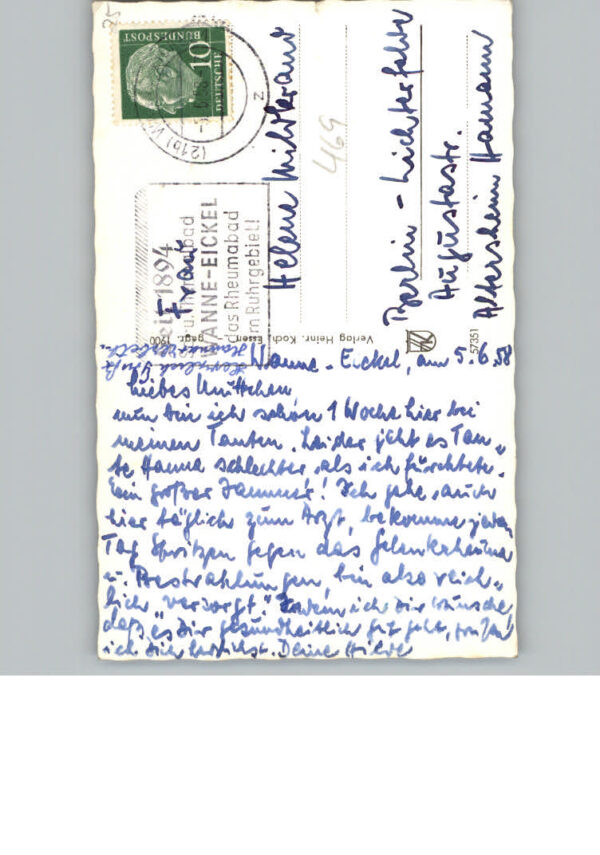 Wanne-Eickel, am 5.6.58
Liebes Muttchen,
nun bin ich schon 1 Woche hier bei
meinen Tanten. Leider geht es Tan-
te Hanna schlechter, als ich fürchtete.
Ein großer Jammer! Ich gehe auch
hier täglich zum Arzt, bekomme jeden
Tag Spritzen gegen das Gelenkrheuma
u. Bestrahlungen, bin also reich-
lich "versorgt". Indem ich Dir wünsche,
daß es Dir gesundheitlich gut geht,
ich Dich herzlichst. Deine Hilde
Herzlich Grüße
DEUTSCHE
BUNDESPOST
10
(21b)
z
seit 1894
Thermalbad
WANNE-EICKEL
das Rheumabad
im Ruhrgebiet!
Frau
Helene
469
Berlin-Lichterfelde
Augustastr.
Altersheim Hamann
Verlag Heinr. Koch, Essen, gegr. 1900
57351
25